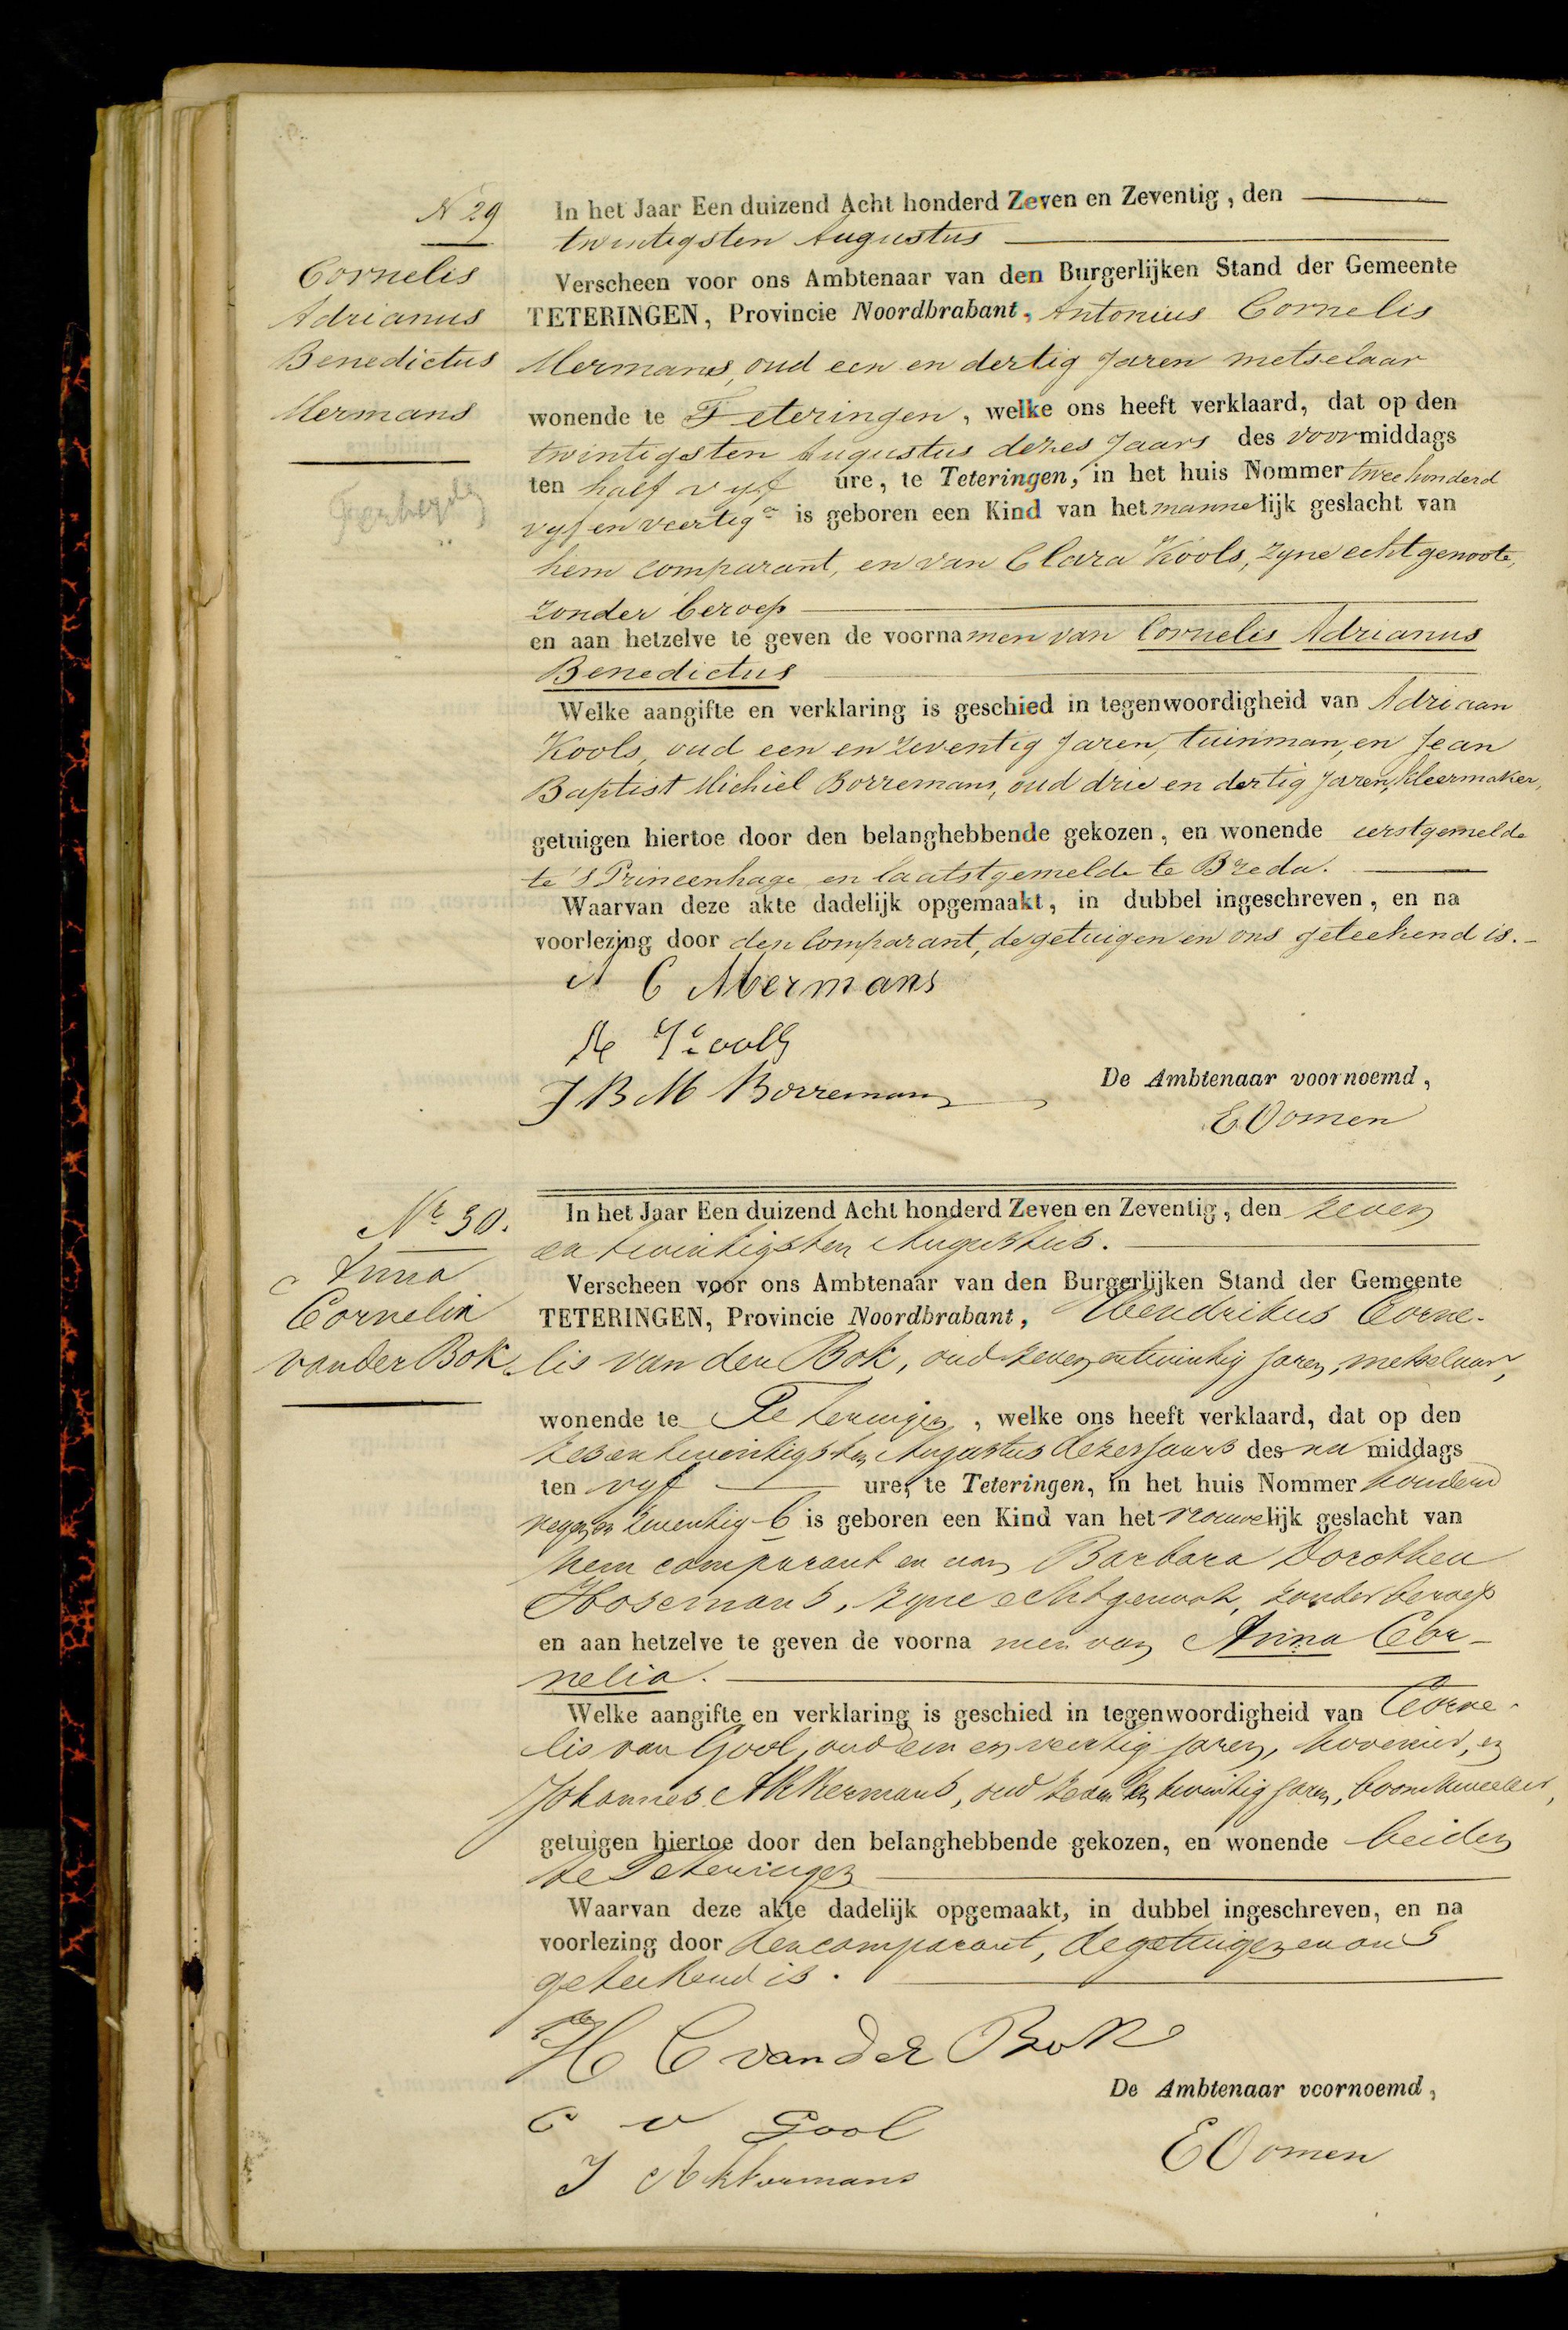 N 29
Cornelis
Adrianus
Benedictus
Mermans
In het Jaar Een duizend Acht honderd Zeven en Zeventig, den
twintigsten Augustus
Verscheen voor ons Ambtenaar van den Burgerlijken Stand der Gemeente
TETERINGEN, Provincie Noordbrabant, Antonius Cornelis
Mermans, oud een en dertig Jaren metselaar
wonende te Teteringen, welke ons heeft verklaard, dat op den
twintigsten Augustus dezes Jaars des voormiddags
ten half vyf ure, te Teteringen, in het huis Nommer twee honderd
vyf en veertig a is geboren een Kind van het mannelijk geslacht van
hem comparant, en van Clara Kools, zyne echtgenoote,
zonder beroep
en aan hetzelve te geven de voornamen van Cornelis Adrianus
Benedictus
Welke aangifte en verklaring is geschied in tegenwoordigheid van Adriaan
Kools, oud een en zeventig Jaren, tuinman, en Jean
Baptist Michiel Borremans, oud drie en dertig Jaren, kleermaker,
getuigen hiertoe door den belanghebbende gekozen, en wonende eerstgemelde
te 's Princenhage en laatstgemelde te Breda.
Waarvan deze akte dadelijk opgemaakt, in dubbel ingeschreven, en na
voorlezing door den Comparant, de getuigen en ons geteekend is.
A C Mermans
A Kools
J B M Borremans
De Ambtenaar voornoemd,
E Oomen
Nr 30.
Anna
Cornelia
van der Bok
In het Jaar Een duizend Acht honderd Zeven en Zeventig, den zeven
en twintigsten Augustus.
Verscheen voor ons Ambtenaar van den Burgerlijken Stand der Gemeente
TETERINGEN, Provincie Noordbrabant, Hendrikus Corne-
lis van der Bok, oud zeven en twintig jaren, metselaar,
wonende te Teteringen, welke ons heeft verklaard, dat op den
zes en twintigsten Augustus dezes jaars des na middags
ten vyf ure, te Teteringen, in het huis Nommer honderd
negen en zeventig b is geboren een Kind van het vrouwelijk geslacht van
hem comparant en van Barbara Dorothea
Hosemans, zyne echtgenoote, zonder beroep
en aan hetzelve te geven de voorna men van Anna Cor-
nelia.
Welke aangifte en verklaring is geschied in tegenwoordigheid van Corne-
lis van Gool, oud een en veertig jaren, hovenier, en
Johannes Akkermans, oud zeven en twintig jaren, boomkweeker,
getuigen hiertoe door den belanghebbende gekozen, en wonende beiden
te Teteringen
Waarvan deze akte dadelijk opgemaakt, in dubbel ingeschreven, en na
voorlezing door den comparant, de getuigen en ons
geteekend is.
H C van der Bok
C v Gool
J Akkermans
De Ambtenaar voornoemd,
E Oomen